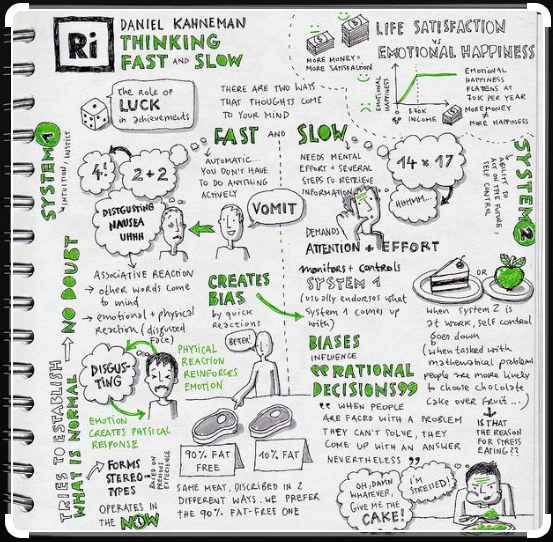 Ri
DANIEL KAHNEMAN
THINKING
FAST AND SLOW
The role of
LUCK
in achievements
THERE ARE TWO WAYS
THAT THOUGHTS COME
TO YOUR MIND
LIFE SATISFACTION
VS
EMOTIONAL HAPPINESS
MORE MONEY =
MORE SATISFACTION
EMOTIONAL
HAPPINESS
INCOME
EMOTIONAL
HAPPINESS
FLATENS AT
70K PER YEAR
MORE MONEY
≠
MORE HAPPINESS
FAST AND SLOW
SYSTEM 1
INTUITION / INSTINCT
4!
2+2
AUTOMATIC...
YOU DON'T HAVE
TO DO ANYTHING
ACTIVELY
DISTGUSTING
NAUSEA
UHHH
VOMIT
ASSOCIATIVE REACTION
→ other words come
to mind
→ emotional + physical
Reaction (disgusted
face)
NO DOUBT
CREATES
BIAS
by quick
Reactions
DISGUS-
TING
PHYSICAL
REACTION
REINFORCES
EMOTION
EMOTION
CREATES PHYSICAL
RESPONSE
TRIES TO ESTABLISH
WHAT IS NORMAL
FORMS
STEREO-
TYPES
BASED ON
PREVIOUS
EXPERIENCE
OPERATES IN
THE NOW
BETTER!
90% FAT
FREE
10% FAT
SAME MEAT, DISCRIBED IN 2
DIFFERENT WAYS. WE PREFER
THE 90% FAT-FREE ONE
SYSTEM 2
ABILITY TO
ACT ON THE FUTURE,
SELF CONTROL
NEEDS MENTAL
EFFORT + SEVERAL
STEPS TO RETRIEVE
INFORMATION
14 × 17
HMMM...
DEMANDS
ATTENTION + EFFORT
monitors + controls
SYSTEM 1
(usually endorses what
System 1 comes up
with)
OR
when system 2 is
at work, self control
goes down
(when tasked with
mathematical problems
people are more likely
to choose chocolate
cake over fruit...)
IS THAT
THE REASON
FOR STRESS
EATING??
BIASES
INFLUENCE
"RATIONAL
DECISIONS"
"WHEN PEOPLE
ARE FACED WITH A PROBLEM
THEY CAN'T SOLVE, THEY
COME UP WITH AN ANSWER
NEVERTHELESS"
OH, DAMN
WHATEVER,
GIVE ME THE
CAKE!
I'M
STRESSED!